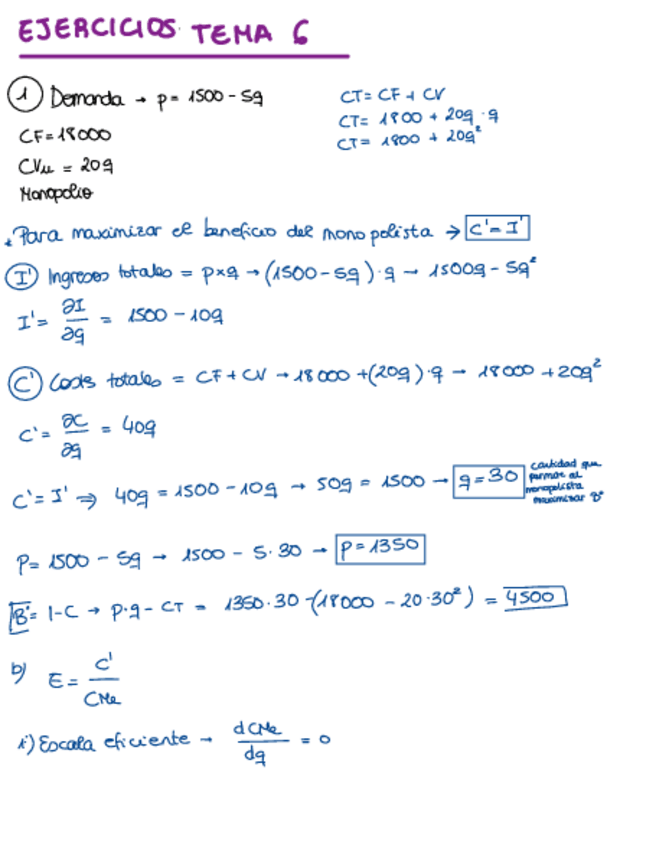 EJERCICIOS TEMA 6
① Demanda → p = 1500 - 5q
CF = 18000
CVu = 20q
Monopolio
CT = CF + CV
CT = 1800 + 20q · q
CT = 1800 + 20q²
Para maximizar el beneficio del monopolista → C' = I'
I' Ingresos totales = p×q → (1500 - 5q) · q → 1500q - 5q²
I' = ∂I/∂q = 1500 - 10q
C' Costes totales = CF + CV → 18000 + (20q) · q → 18000 + 20q²
C' = ∂C/∂q = 40q
C' = I' ⇒ 40q = 1500 - 10q → 50q = 1500 → q = 30
cantidad que
permite al
monopolista
maximizar Bº
P = 1500 - 5q → 1500 - 5·30 → P = 1350
Bº = I - C → p·q - CT = 1350·30 - (18000 - 20·30²) = 4500
b) E = C'/CMe
i) Escala eficiente → dCMe/dq = 0